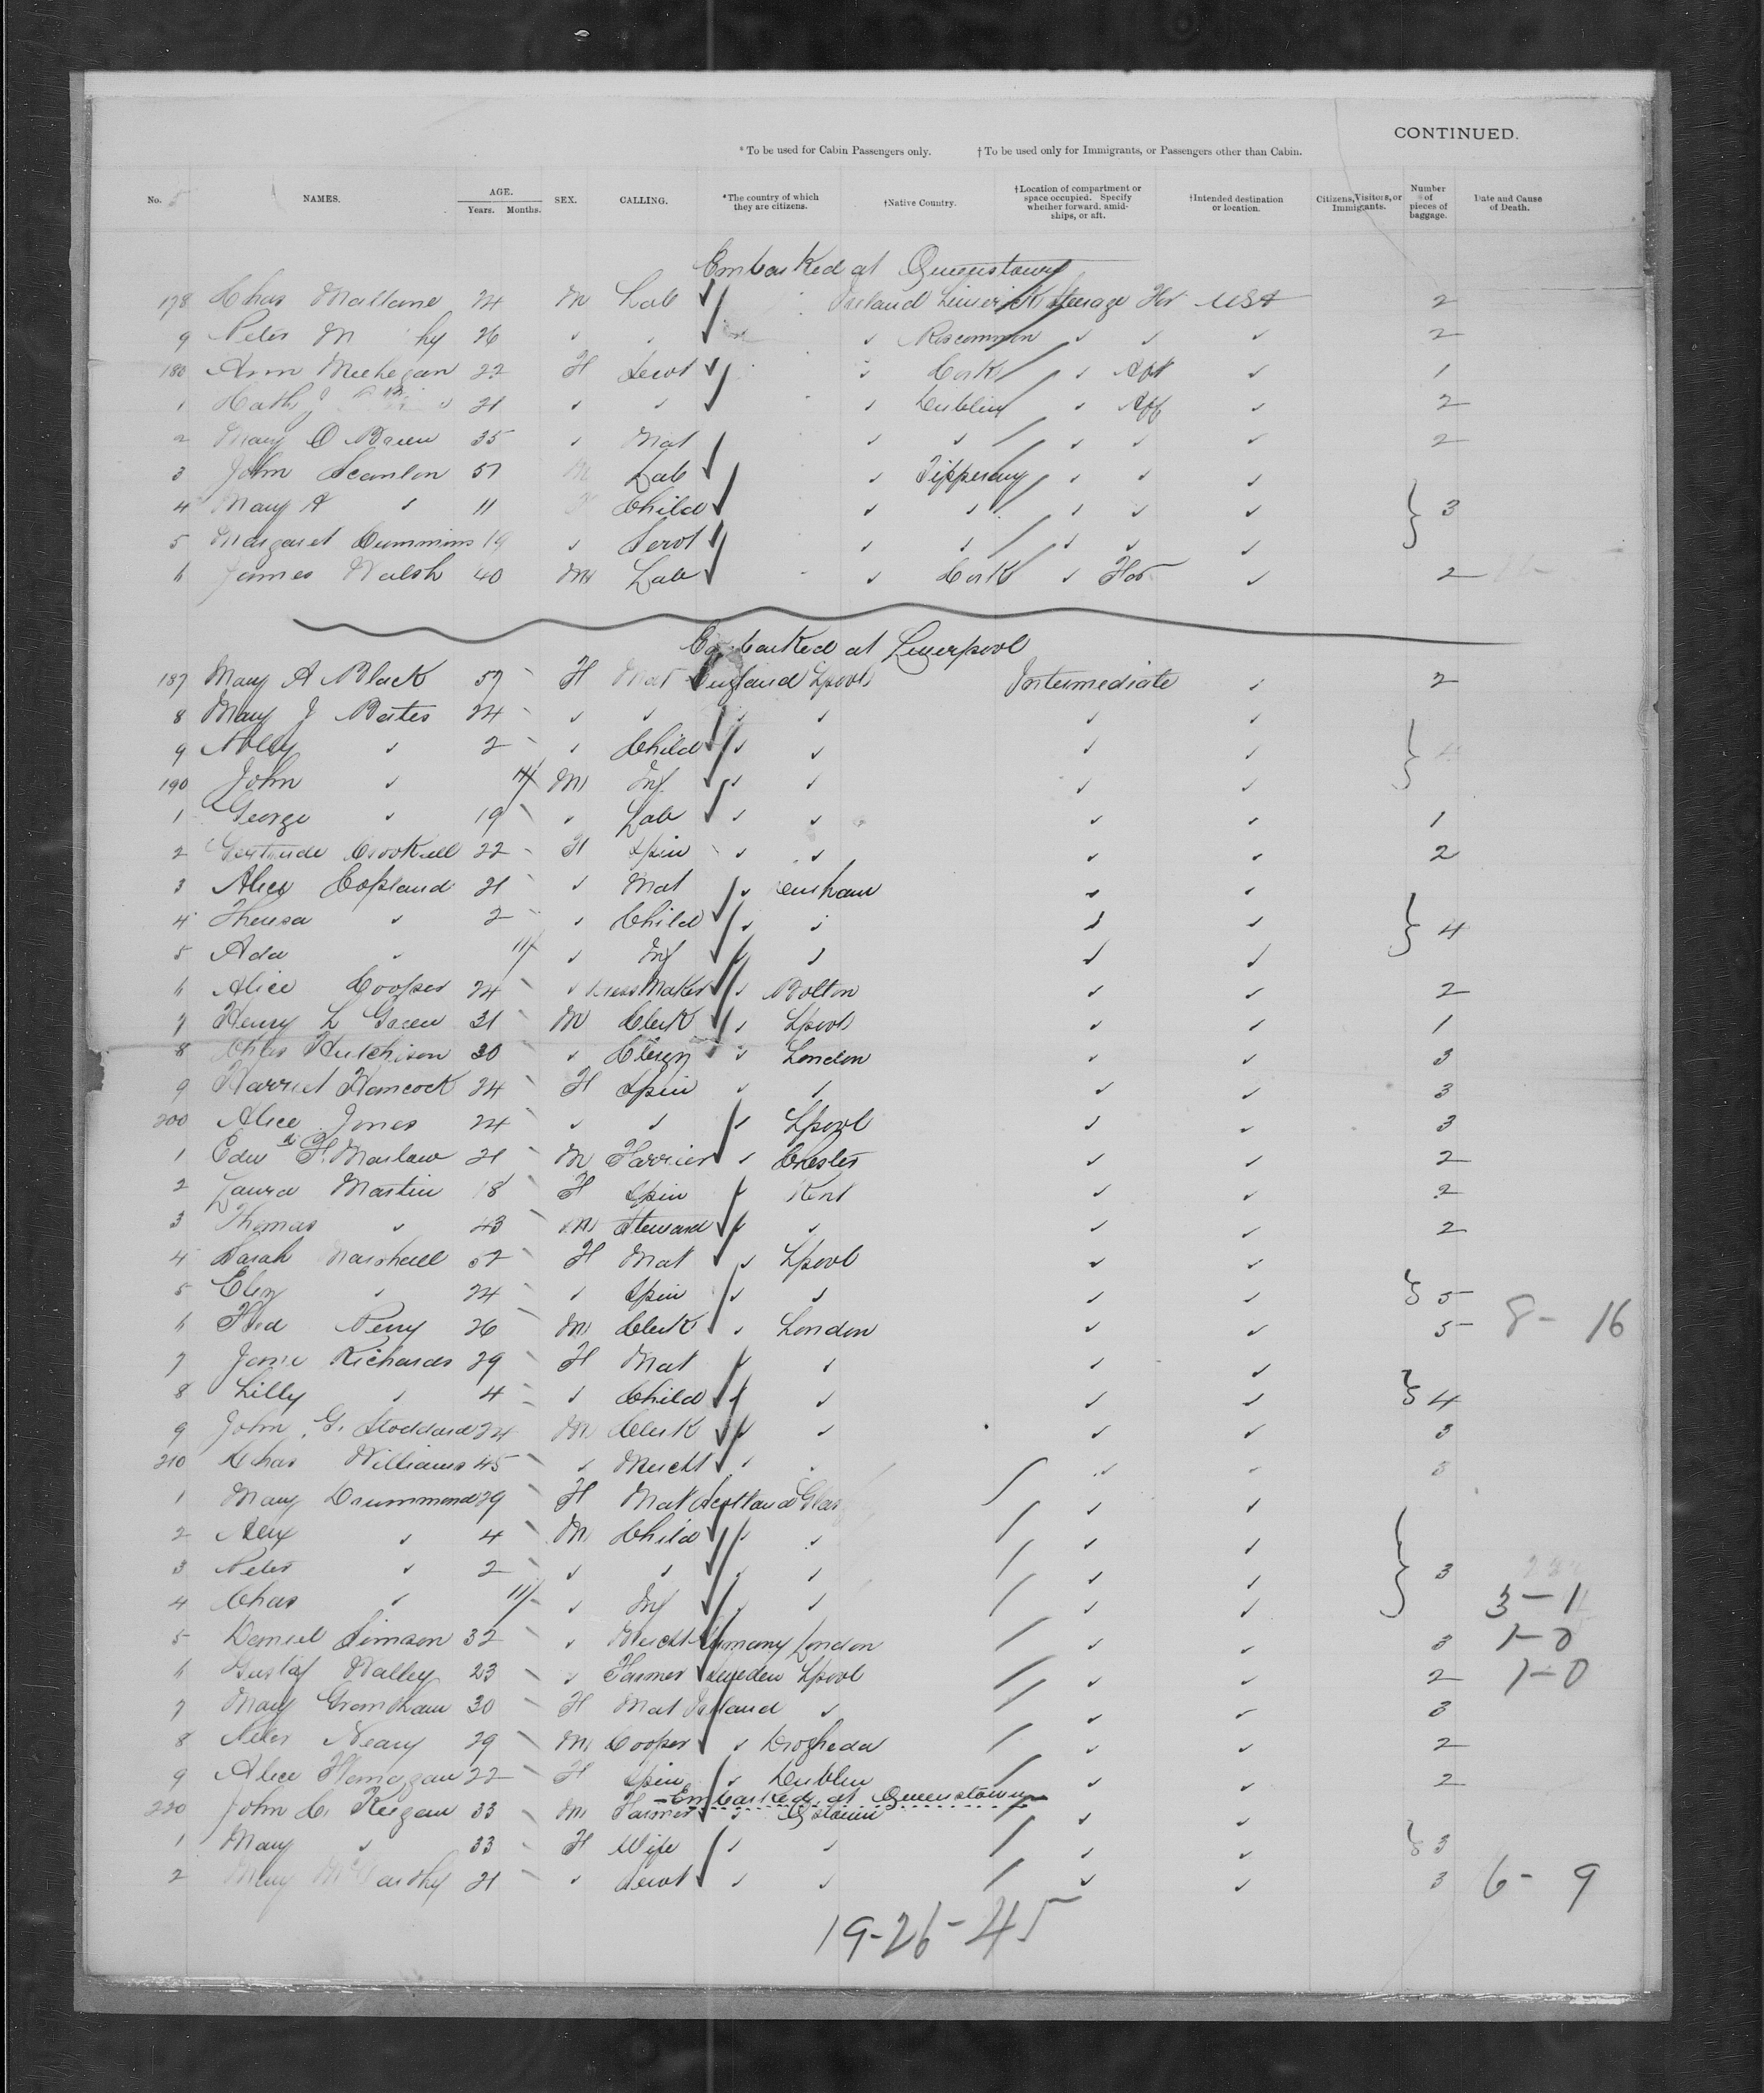 CONTINUED.
* To be used for Cabin Passengers only. † To be used only for Immigrants, or Passengers other than Cabin.
No. 5 NAMES. AGE. Years. Months. SEX. CALLING. *The country of which they are citizens. †Native Country. †Location of compartment or space occupied. Specify whether forward, amidships, or aft. †Intended destination or location. Citizens, Visitors, or Immigrants. Number of pieces of baggage. Date and Cause of Death.
Embarked at Queenstown
178 Chas Mallane 24 M Lab Ireland Limerick Steerage For USA 2
9 Peter 26 ✓ ✓ ✓ Roscommon ✓ ✓ ✓ 2
180 Ann Meehegan 22 F Servt ✓ Cork ✓ Aft ✓ 1
1 Kath J 21 ✓ ✓ ✓ Dublin ✓ Aft ✓ 2
2 Mary O Brien 35 ✓ Mat ✓ ✓ ✓ ✓ ✓ 2
3 John Scanlon 51 M Lab ✓ Tipperary ✓ ✓ ✓
4 Mary A ✓ 11 F Child ✓ ✓ ✓ ✓ ✓ } 3
5 Margaret Cummins 19 ✓ Servt ✓ ✓ ✓ ✓ ✓
6 James Walsh 40 M Lab ✓ Cork ✓ For ✓ 2
Embarked at Liverpool
187 Mary A Black 57 F Mat England Lpool Intermediate ✓ 2
8 Mary J Bates 24 ✓ ✓ ✓ ✓ ✓ ✓
9 Nelly ✓ 2 ✓ Child ✓ ✓ ✓ ✓ } 4
190 John ✓ M Inf ✓ ✓ ✓ ✓
1 George ✓ 19 ✓ Lab ✓ ✓ ✓ ✓ 1
2 Gertrude Crookell 22 F Spin ✓ ✓ ✓ ✓ 2
3 Alice Copland 21 ✓ Mat ✓ ✓ ✓
4 Theresa ✓ 2 ✓ Child ✓ ✓ ✓ ✓ } 4
5 Ada ✓ 11 ✓ Inf ✓ ✓ ✓ ✓
6 Alice Cooper 24 ✓ Dress Maker ✓ Bolton ✓ ✓ 2
7 Henry L Green 31 M Clerk ✓ Lpool ✓ ✓ 1
8 Chas Hutchison 30 ✓ Clergy ✓ London ✓ ✓ 3
9 Harriet Hancock 24 F Spin ✓ ✓ ✓ ✓ 3
200 Alice Jones 24 ✓ ✓ ✓ Lpool ✓ ✓ 3
1 Edwd F. Marlaw 21 M Farrier ✓ Chester ✓ ✓ 2
2 Laura Martin 18 F Spin ✓ Kent ✓ ✓ 2
3 Thomas ✓ 43 M Steward ✓ ✓ ✓ ✓ 2
4 Sarah Marshall 52 F Mat ✓ Lpool ✓ ✓
5 Eliz ✓ 24 ✓ Spin ✓ ✓ ✓ ✓ } 5
6 Fred Perry 26 M Clerk ✓ London ✓ ✓ 5 8 - 16
7 Jane Richards 29 F Mat ✓ ✓ ✓ ✓
8 Lilly ✓ 4 ✓ Child ✓ ✓ ✓ ✓ } 4
9 John G. Stoddard 24 M Clerk ✓ ✓ ✓ ✓ 3
210 Chas Williams 45 ✓ Mercht ✓ ✓ ✓ 3
1 Mary Drummond 29 F Mat Scotland Glas ✓ ✓
2 Alex ✓ 4 M Child ✓ ✓ ✓ ✓
3 Peter ✓ 2 ✓ ✓ ✓ ✓ ✓ ✓ } 3
4 Chas ✓ 11 ✓ Inf ✓ ✓ ✓ ✓ 3 - 1
5 Daniel Simson 32 ✓ Mercht Germany London ✓ ✓ 3 1 - 0
6 Gustaf Walley 23 ✓ Farmer Sweden Lpool ✓ ✓ 2 1 - 0
7 Mary Grandham 30 F Mat Ireland ✓ ✓ ✓ 3
8 Peter Neary 29 M Cooper ✓ Drogheda ✓ ✓ 2
9 Alice Flanagan 22 F Spin ✓ Dublin ✓ ✓ 2
Embarked at Queenstown
220 John C. Keegan 33 M Farmer ✓ Qstown ✓ ✓
1 Mary ✓ 33 F Wife ✓ ✓ ✓ ✓ } 3
2 Mary McCarthy 21 ✓ Servt ✓ ✓ ✓ ✓ 3 6 - 9
19-26-45